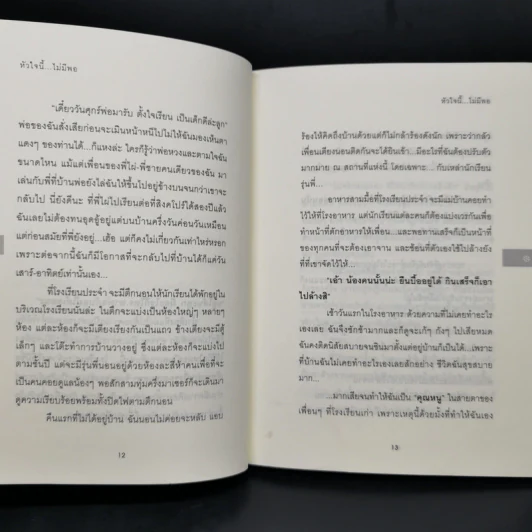 หัวใจนี้...ไม่มีพอ
"เดี๋ยววันศุกร์พ่อมารับ ตั้งใจเรียน เป็นเด็กดีล่ะลูก"
พ่อของฉันสั่งเสียก่อนจะเมินหน้าหนีไปไม่ให้ฉันมองเห็นตา
แดงๆ ของท่านได้...ก็แหงล่ะ ใครก็รู้ว่าพ่อหวงและตามใจฉัน
ขนาดไหน แม้แต่เพื่อนของพี่ไม่-พี่ชายคนเดียวของฉัน มา
เล่นกับพี่ที่บ้านพ่อยังไล่ฉันให้ขึ้นไปอยู่ข้างบนจนกว่าเขาจะ
กลับไป นี่ยังดีนะ ที่พี่ไม่ไปเรียนต่อที่สิงคโปร์ได้สองปีแล้ว
ฉันเลยไม่ต้องทนอุดอู้อยู่แต่บนบ้านครึ่งวันค่อนวันเหมือน
แต่ก่อนสมัยที่พี่ยังอยู่...เฮ้อ แต่ก็คงไม่เกี่ยวกันเท่าไหร่หรอก
เพราะต่อจากนี้ฉันก็มีโอกาสที่จะกลับไปที่บ้านได้ก็แค่วัน
เสาร์-อาทิตย์เท่านั้นเอง...
ที่โรงเรียนประจำ จะมีตึกนอนให้นักเรียนได้พักอยู่ใน
บริเวณโรงเรียนนั่นล่ะ ในตึกจะแบ่งเป็นห้องใหญ่ๆ หลายๆ
ห้อง แต่ละห้องก็จะมีเตียงเรียงกันเป็นแถว ข้างเตียงจะมีตู้
เล็กๆ และโต๊ะทำการบ้านวางอยู่ ซึ่งแต่ละห้องก็จะแบ่งไป
ตามชั้นปี และจะมีรุ่นพี่นอนอยู่ด้วยห้องละสี่ห้าคนเพื่อที่จะ
เป็นคนคอยดูแลน้องๆ พอสักสามทุ่มครึ่งมาเซอร์ก็จะเดินมา
ดูความเรียบร้อยพร้อมทั้งปิดไฟตามตึกนอน
คืนแรกที่ไม่ได้อยู่บ้าน ฉันนอนไม่ค่อยจะหลับ แอบ
12
หัวใจนี้...ไม่มีพอ
ร้องไห้คิดถึงบ้านด้วยแต่ก็ไม่กล้าร้องดังนัก เพราะว่ากลัว
เพื่อนเตียงนอนติดกันจะได้ยินเข้า...มีอะไรที่ฉันต้องปรับตัว
มากมาย ณ สถานที่แห่งนี้ โดยเฉพาะ....กับเหล่านักเรียน
รุ่นพี่...
อาหารสามมื้อที่โรงเรียนประจำ จะมีแม่บ้านคอยทำ
ไว้ให้ที่โรงอาหาร แต่นักเรียนแต่ละคนก็ต้องแบ่งเวรกันเพื่อ
ทำหน้าที่ตักอาหารให้เพื่อน...และพอทานเสร็จก็เป็นหน้าที่
ของทุกคนที่จะต้องเอาจาน และช้อนที่ตัวเองใช้ไปล้างยัง
ที่ที่เขาจัดไว้ให้...
"เอ้า น้องคนนั้นน่ะ ยืนบื้ออยู่ได้ กินเสร็จก็เอา
ไปล้างสิ"
เช้าวันแรกในโรงอาหาร ด้วยความที่ไม่เคยทำอะไร
เองเลย ฉันจึงชักช้ามากและก็ดูจะเก้ๆ กังๆ ไปเสียหมด
ฉันคงติดนิสัยสบายจนชินมาตั้งแต่อยู่บ้านก็เป็นได้...เพราะ
ที่บ้านฉันไม่เคยทำอะไรเองเลยสักอย่าง ชีวิตฉันสุขสบาย
มาก...
...มากเสียจนทำให้ฉันเป็น "คุณหนู" ในสายตาของ
เพื่อนๆ ที่โรงเรียนเก่า เพราะเหตุนี้ด้วยมั้งที่ทำให้ฉันเอง
13